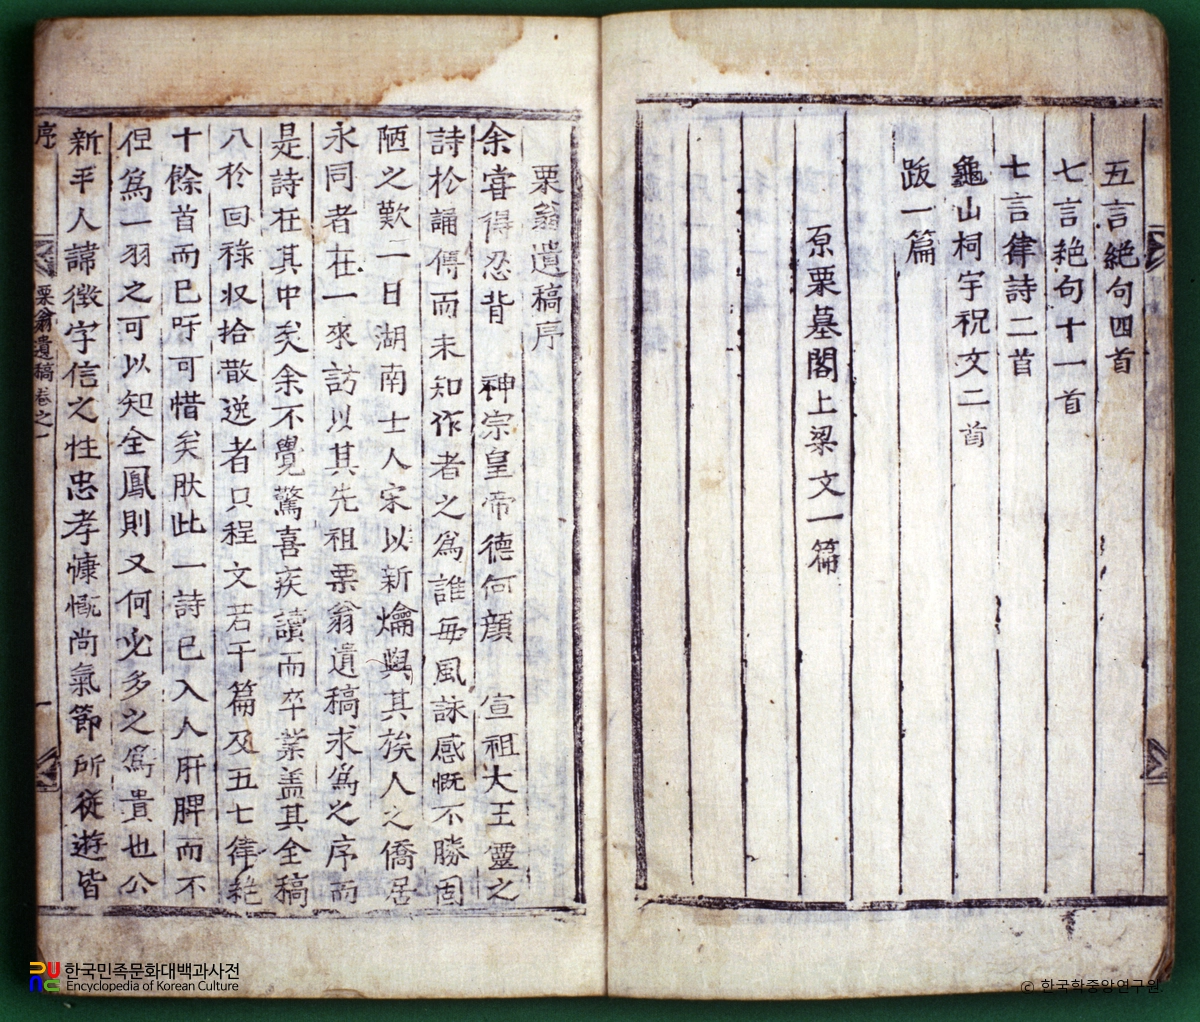 五言絶句四首
七言絶句十一首
七言律詩二首
龜山祠宇祝文二首
跋一篇
原栗墓閣上梁文一篇
栗翁遺稿序
余嘗得忍背 神宗皇帝德何顔 宣祖大王靈之
詩於誦傳而未知作者之爲誰每風詠感慨不勝固
陋之歎二日湖南士人宋以新爚與其族人之僑居
永同者在一來訪以其先祖栗翁遺稿求爲之序而
是詩在其中矣余不覺驚喜疾讀而卒業盖其全稿
八於回祿収拾散逸者只程文若干篇及五七律絶
十餘首而已吁可惜矣肰此一詩已入人肝脾而不
但爲一羽之可以知全鳳則又何必多之爲貴也公
新平人諱徵字信之性忠孝慷慨尚氣節所從遊皆
序
栗翁遺稿卷之一
一
한국민족문화대백과사전
Encyclopedia of Korean Culture
© 한국학중앙연구원